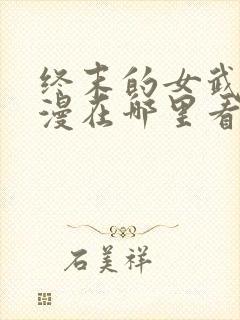 终末的女武
漫在哪里看
石美祥